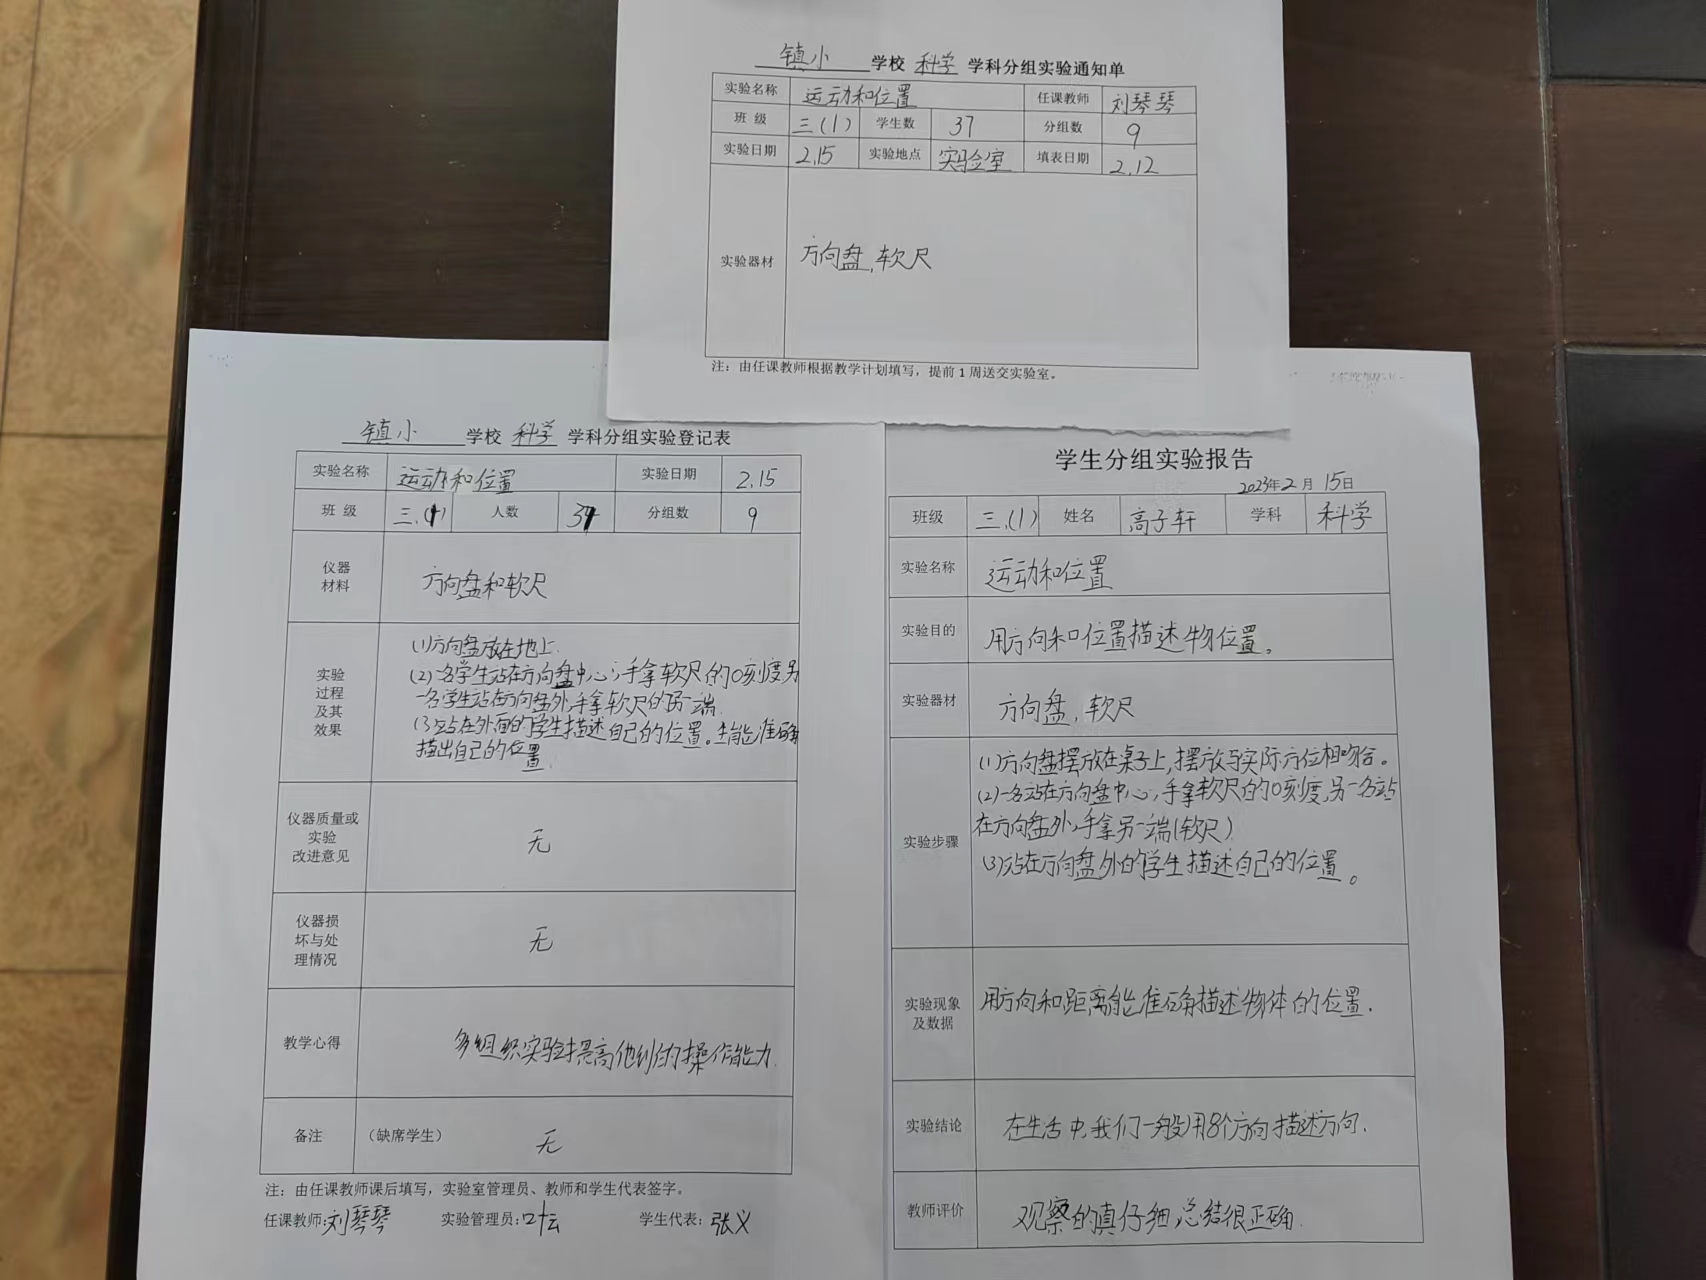 镇小 学校 科学 学科分组实验通知单
实验名称 运动和位置 任课教师 刘琴琴
班 级 三(1) 学生数 37 分组数 9
实验日期 2.15 实验地点 实验室 填表日期 2.12
实验器材 方向盘,软尺
注:由任课教师根据教学计划填写,提前1周送交实验室。
镇小 学校 科学 学科分组实验登记表
实验名称 运动和位置 实验日期 2.15
班 级 三.(1) 人数 37 分组数 9
仪器
材料
方向盘和软尺
实验
过程
及其
效果
(1)方向盘放在地上.
(2)一名学生站在方向盘中心,手拿软尺的0刻度另
一名学生站在方向盘外,手拿软尺的另一端.
(3)站在外面的学生描述自己的位置。生能准确
描出自己的位置.
仪器质量或
实验
改进意见
无
仪器损
坏与处
理情况
无
教学心得 多组织实验提高他们的操作能力.
备注 (缺席学生) 无
注:由任课教师课后填写,实验室管理员、教师和学生代表签字。
任课教师:刘琴琴 实验管理员: 学生代表:张义
学生分组实验报告
2023年2月15日
班级 三.(1) 姓名 高子轩 学科 科学
实验名称 运动和位置
实验目的 用方向和位置描述物位置。
实验器材 方向盘,软尺
实验步骤
(1)方向盘摆放在桌子上,摆放与实际方位相吻合。
(2)一名站在方向盘中心,手拿软尺的0刻度,另一名站
在方向盘外,手拿另一端(软尺)
(3)站在方向盘外的学生描述自己的位置。
实验现象
及数据
用方向和距离能准确描述物体的位置.
实验结论 在生活中,我们一般用8个方向描述方向.
教师评价 观察的真仔细,总结很正确.